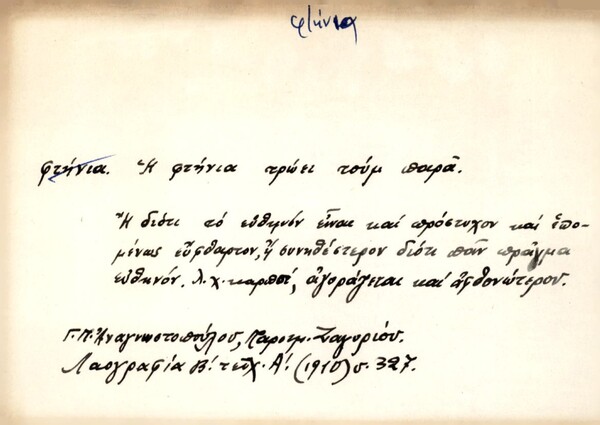 φτήνια
φτήνια. Ἡ φτήνια τρώει τοὺμ παρᾶ.
Ἢ διότι τὸ εὐθηνὸν εἶναι καὶ πρόστυχον καὶ ἑπο-
μένως εὔφθαρτον, ἢ συνηθέστερον διότι πᾶν πρᾶγμα
εὐθηνόν. λ.χ. καρποί, ἀγοράζεται καὶ ἀφθονώτερον.
Γ.Π. Ἀναγνωστοπούλου, Παροιμ. Ζαγορίου.
Λαογραφία Β! τεῦχ. Α! (1910) σ. 327.